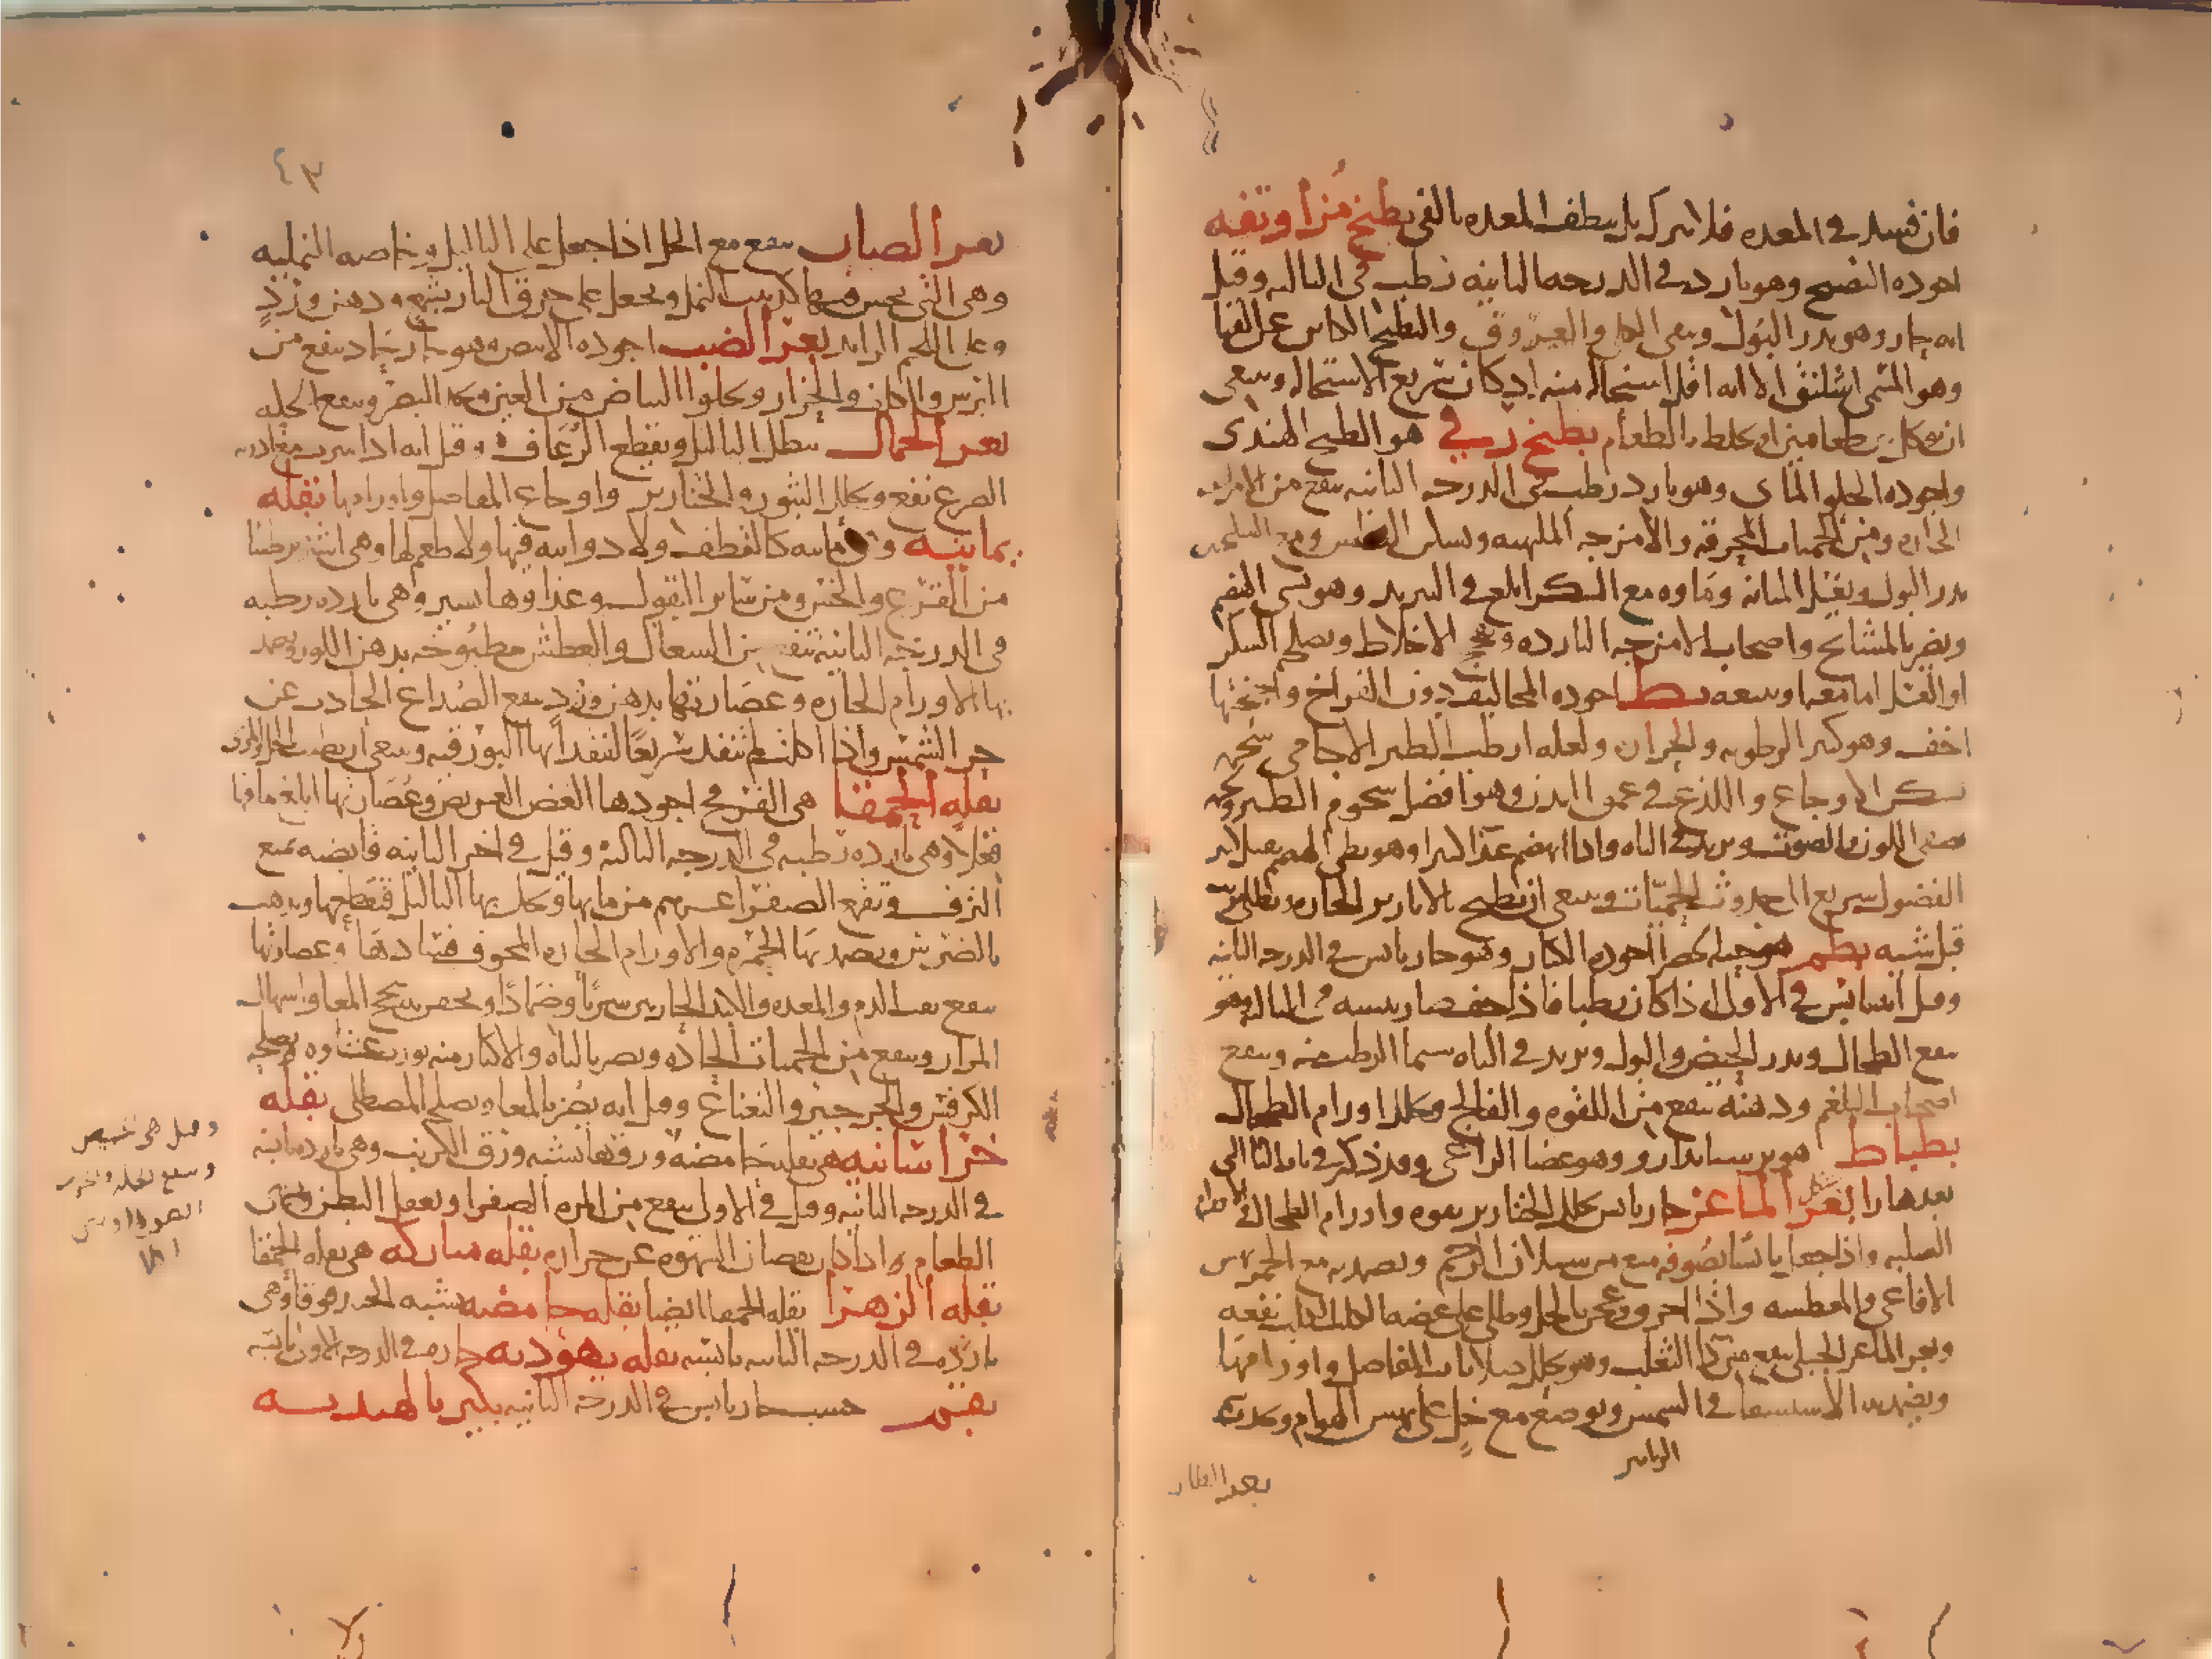 فان فسد في المعدة فلا يترك بل ينظف المعده بالقي بطيخ مزاوتفه
اجوده النضيج وهو بارد في الدرجه الثانيه رطب في الثالثه وقيل
انه حار وهو يدر البول وينقي الكلى والعروق والبطيخ الكاين عن القثا
وهو المسمى اشلنق الا انه اقل استحاله منه اذ كان سريع الاستحاله وينبغي
ان يوكل بين طعامين او يخلط بالطعام بطيخ رقي هو البطيخ الهندي
واجوده الحلو المائي وهو بارد رطب في الدرجه الثانيه ينفع من الامراض
الحاره ومن الحميات المحرقه والامزجه الملتهبه ويسكن العطش ومع السكنجبين
يدر البول ويغسل المثانه وماوه مع السكر ابلغ في التبريد وهو يسي الهضم
ويضر بالمشايخ واصحاب الامزجه البارده الاخلاط ويصلحه السكر
او العسل اما معه او بعده بط اجوده المخاليف دون الفراخ واجنحتها
اخف وهو كثير الرطوبه والحراره ولعله ارطب الطير الاجامي شحمه
يسكن الاوجاع واللذع في عمق البدن وهو افضل شحوم الطير
يصفي اللون والصوت ويزيد في الباه واذا انهضم غذا كثيرا وهو بطي الهضم ثقيل كثير
الفضول سريع الحدوث للحميات وينبغي ان يطبخ بالابازير الحاره
قبل شيه بطم هو حبه الخضرا اجوده الكبار وهو حار يابس في الدرجه الثانيه
وقيل انه يابس في الاولى اذا كان رطبا فاذا جف صار يبسه في الثالثه وهو
ينفع الطحال ويدر الحيض والبول ويزيد في الباه سيما الرطب منه وينفع
اصحاب البلغم ودهنه ينفع من اللقوه والفالج ويحلل اورام الطحال
بطباط هو برسياندارو وهو عصا الراعي وقد ذكر في باب الثا التي
بعدها را بعر الماعز حار يابس يحلل الخنازير بقوه واورام الطحال
الصلبه واذا جعل يابسا بصوفه منع من سيلان الرحم ويضمد به مع الخمر نهش
الافاعي والمعطشه واذا احرق وعجن بالخل وطلي على عضه الكلب الكلب نفعه
وبعر الماعز الجبلي ينفع من دا الثعلب وهو يحلل صلابات المفاصل واورامها
ويضمد به الاستسقا في الشمس ويوضع مع خل على نهش الهوام
بعر الضان
٤٣
بعر الضان ينفع مع الخل اذا جعل على الثاليل وخاصه النمليه
وهي التي يحس فيها كدبيب النمل ويجعل على حرق النار بشمع ودهن ورد
وعلى اللحم الزايد بعر الضب اجوده الابيض وهو حار حاد ينفع من
البرص والكلف والحزاز ويجلو البياض من العين ويحد البصر وينفع الحكه
بعر الجمال يبطل الثاليل ويقطع الرعاف وقيل انه اذا شرب مع ادويه
الصرع نفع ويحلل البثور والخنازير واوجاع المفاصل واورامها بقله
يمانيه ومائيه كالقطف ولا دوائيه فيها ولا طعم لها وهي اشد ترطيبا
من القرع والخس ومن ساير البقول وغذاوها يسير وهي بارده رطبه
في الدرجه الثانيه تنفع من السعال والعطش مطبوخه بدهن اللوز ويضمد
بها الاورام الحاره وعصارتها بدهن ورد ينفع الصداع الحادث عن
حر الشمس واذا اكلت لم تنفد سريعا لفقدانها البورقيه وينبغي ان تطيب بالخل والمري
بقله الحمقا هي الفرفح اجودها الغض العريض وعصارتها ابلغ ما فيها
فعلا وهي بارده رطبه في الدرجه الثالثه وقيل في اخر الثانيه قابضه تمنع
النزف وتقمع الصفرا ويحك بها الثاليل فتقطعها ويذهب
بالضرس ويضمد بها الجمره والاورام الحاره المخوف فسادها وعصارتها
ينفع نفث الدم والمعده والكبد الحارين شربا وضمادا ويحقن به سحج المعا واسهال
المرار وينفع من الحميات الحاده ويضر بالباه والاكثار منه يورث غشاوه ويصلحه
الكرفس والجرجير والنعناع وقيل انه يضر بالمعا ويصلحه المصطكى بقله
خراسانيه هي بقله حامضه ورقها يشبه ورق الكرنب وهي بارده يابسه
في الدرجه الثانيه وقيل في الاولى ينفع من المره الصفرا ويعقل البطن
الطعام واذا كان نقصان الشهوه عن حراره بقله مباركه هي بقله الحمقا
بقله الزهرا بقله الحمقا ايضا بقله حامضه وهي
بارده في الدرجه الثانيه يابسه بقله يهوديه حاره في الدرجه الاولى يابسه
بقم خشب حار يابس في الدرجه الثانيه بكير بالهنديه